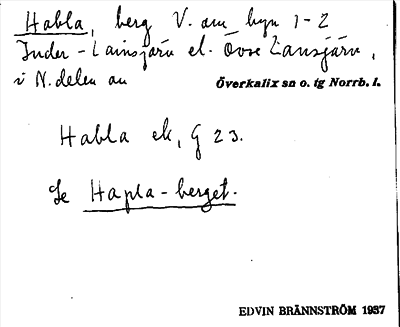 Habla, berg V. om byn 1-2
Inder-Lainsjärv el. Övre Lansjärv,
i N. delen av Överkalix sn o. tg Norrb. l.
Habla ek, G 23.
Se Hapla-berget.
EDVIN BRÄNNSTRÖM 1937